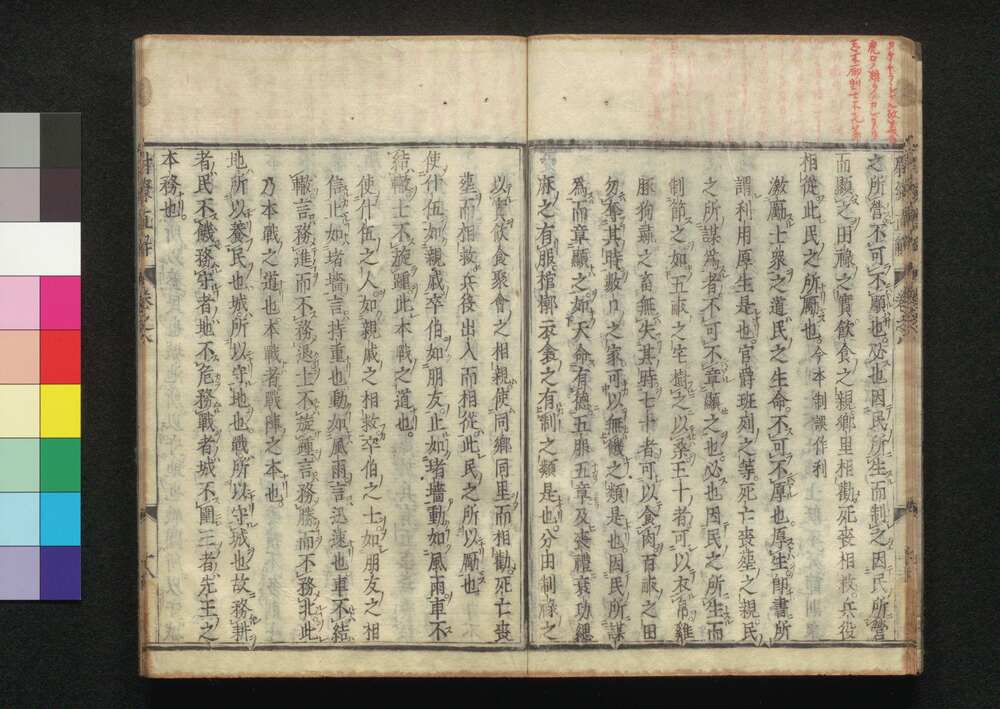 之所營不可不顯也必也因民所生而制之因民所營
而顯之田祿之實飲食之親鄉里相勸死喪相救兵役
相從此民之所厲也今本制誤作利
激厲士眾之道民之生命不可不厚也厚生卽書所
謂利用厚生是也官爵班列之等死亡喪葬之親民
之所謀為者不可不章顯之也必也因民之所生而
制節之如五畝之宅樹之以桑五十者可以衣帛雞
豚狗彘之畜無失其時七十者可以食肉百畝之田
勿奪其時數口之家可以無饑之類是也因民所謀
為而章顯之如天命有德五服五章及喪禮衰功緦
麻之有服棺槨衣衾之有制之類是也分田制祿之
以實飲食聚會之相親使同鄉同里而相勸死亡喪
葬而相救兵役出入而相從此民之所以厲也
使什伍如親戚卒伯如朋友止如堵墻動如風雨車不
結轍士不旋踵此本戰之道也
使什伍之人如親戚之相救卒伯之士如朋友之相
信止如堵墻言持重也動如風雨言迅速也車不結
轍言務進而不務退士不旋踵言務勝而不務北此
乃本戰之道也本戰者戰陣之本也
地所以養民也城所以守地也戰所以守城也故務耕
者民不饑務守者地不危務戰者城不圍三者先王之
本務也